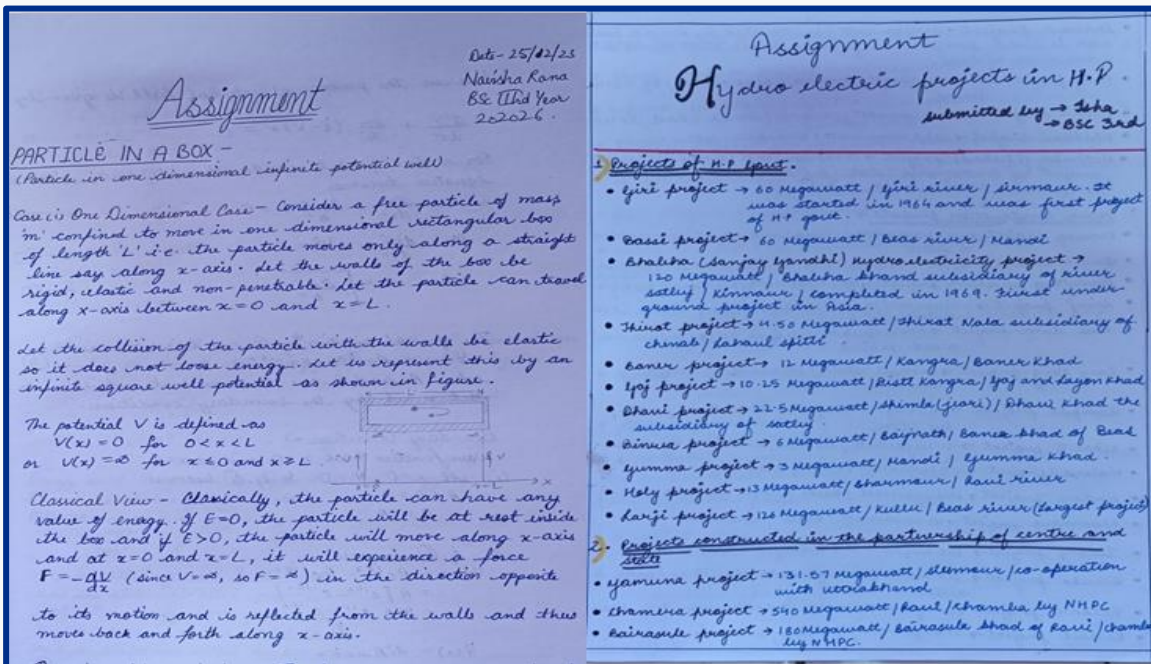 Assignment
Date- 25/12/25
Navisha Rana
BSc IIIrd Year
202026.
PARTICLE IN A BOX -
(Particle in one dimensional infinite potential well)
Case (i) One Dimensional Case - Consider a free particle of mass
'm' confined to move in one dimensional rectangular box
of length 'L' i.e. the particle moves only along a straight
line say along x-axis. Let the walls of the box be
rigid, elastic and non-penetrable. Let the particle can travel
along x-axis between x=0 and x=L.
Let the collision of the particle with the walls be elastic
so it does not loose energy. Let is represent this by an
infinite square well potential as shown in figure.
The potential V is defined as
V(x) = 0 for 0<x<L
or V(x) = ∞ for x≤0 and x≥L
Classical View - Classically, the particle can have any
value of energy. If E=0, the particle will be at rest inside
the box and if E>0, the particle will move along x-axis
and at x=0 and x=L, it will experience a force
F = -dV/dx (since V=∞, so F=∞) in the direction opposite
to its motion and is reflected from the walls and thus
moves back and forth along x-axis.
Assignment
Hydro electric projects in H.P.
submitted by → Isha
→ BSC 3rd
1. Projects of H.P Govt.
• Giri project → 60 Megawatt / Giri river / Sirmaur. It
was started in 1964 and was first project
of H.P govt.
• Bassi project → 60 Megawatt / Beas river / Mandi
• Bhabha (Sanjay Gandhi) Hydroelectricity project →
120 Megawatt / Bhabha khand subsidiary of river
satluj / Kinnaur / completed in 1969. First under-
ground project in Asia.
• Thirot project → 4.50 Megawatt / Thirot Nala subsidiary of
chenab / Lahaul spiti
• Baner project → 12 Megawatt / Kangra / Baner Khad
• Gaj project → 10.25 Megawatt / Distt Kangra / Gaj and Layon Khad
• Dhavi project → 22.5 Megawatt / Shimla (jeori) / Dhavi Khad the
subsidiary of satluj
• Binwa project → 6 Megawatt / Baijnath / Baner khad of Beas
• Gumma project → 3 Megawatt / Mandi / Gumma Khad
• Holy project → 13 Megawatt / Bharmour / Ravi river
• Larji project → 126 Megawatt / Kullu / Beas river (Largest project)
2. Projects constructed in the partnership of centre and
state
• Yamuna project → 131.57 Megawatt / Sirmour / co-operation
with uttrakhand
• Chamera project → 540 Megawatt / Ravi / Chamba by NHPC
• Bairasule project → 180 Megawatt / Bairasule khad of Ravi / chamba
by NHPC.